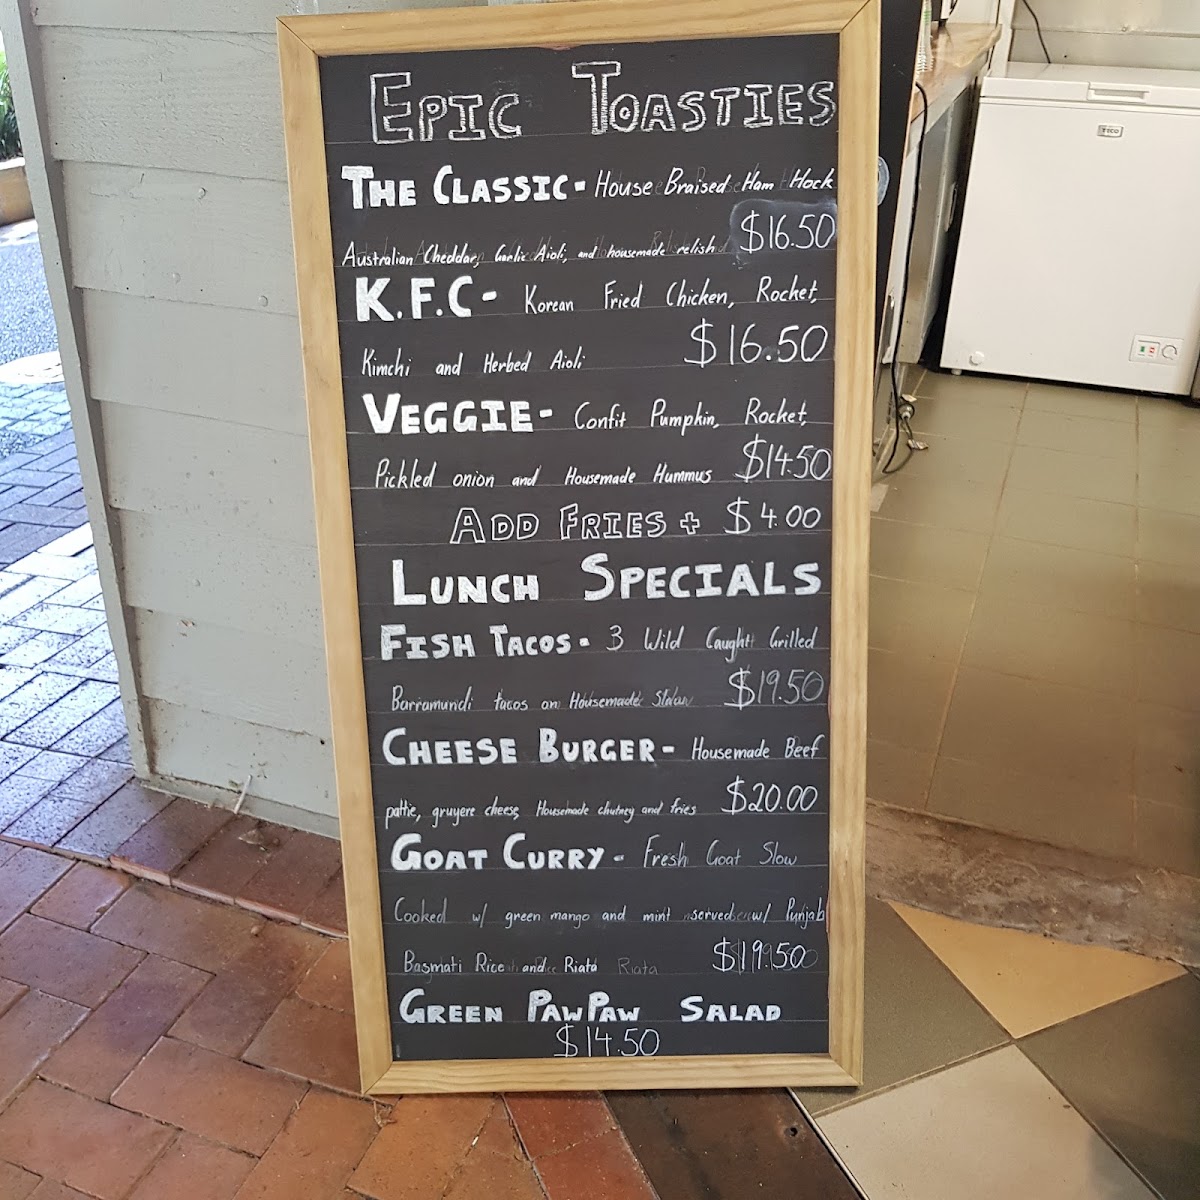 EPIC TOASTIES
THE CLASSIC - House Braised Ham Hock
Australian Cheddar, Garlic Aioli, and housemade relish $16.50
K.F.C - Korean Fried Chicken, Rocket,
Kimchi and Herbed Aioli $16.50
VEGGIE - Confit Pumpkin, Rocket,
Pickled onion and Housemade Hummus $14.50
ADD FRIES + $4.00
LUNCH SPECIALS
FISH TACOS - 3 Wild Caught Grilled
Barramundi tacos on Housemade Slaw $19.50
CHEESE BURGER - Housemade Beef
pattie, gruyere cheese, Housemade chutney and fries $20.00
GOAT CURRY - Fresh Goat Slow
Cooked w/ green mango and mint served w/ Punjab
Basmati Rice and Riata Riata $19.50
GREEN PAWPAW SALAD
$14.50
TICO